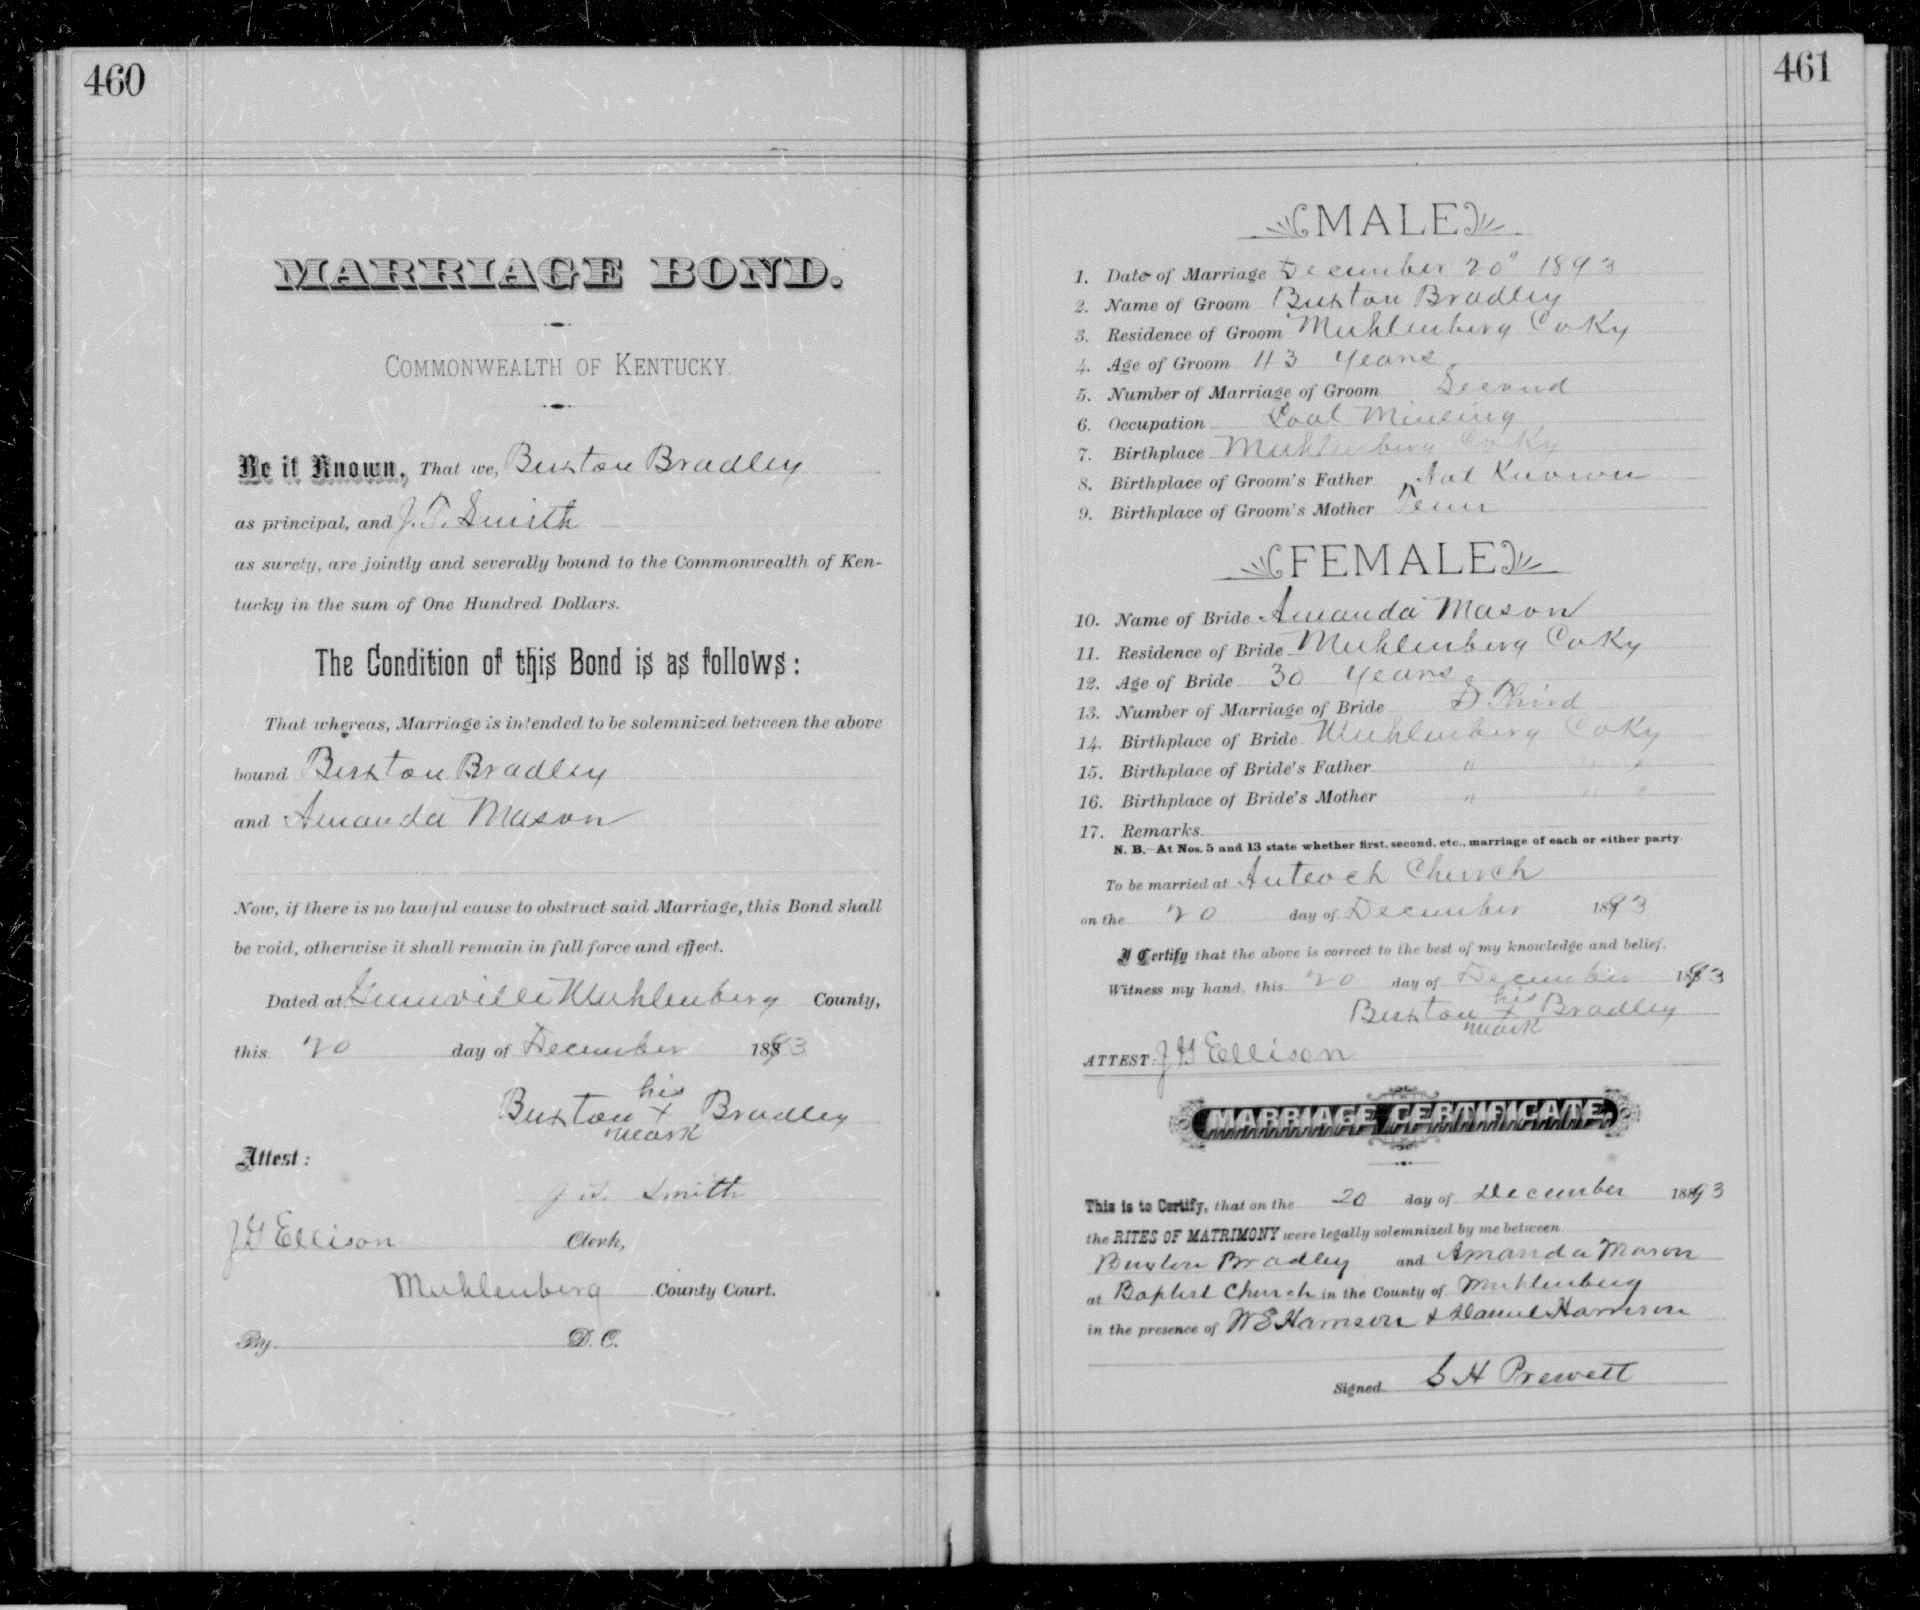 460
MARRIAGE BOND.
COMMONWEALTH OF KENTUCKY.
Be it Known, That we, Buxton Bradley
as principal, and J. T. Smith
as surety, are jointly and severally bound to the Commonwealth of Ken-
tucky in the sum of One Hundred Dollars.
The Condition of this Bond is as follows:
That whereas, Marriage is intended to be solemnized between the above
bound Buxton Bradley
and Amanda Mason
Now, if there is no lawful cause to obstruct said Marriage, this Bond shall
be void, otherwise it shall remain in full force and effect.
Dated at Greenville Muhlenberg County,
this 20 day of December 1893
his
Buxton x Bradley
mark
Attest:
J. T. Smith
J G Ellison Clerk,
Muhlenberg County Court.
By D. C.
461
MALE
1. Date of Marriage December 20" 1893
2. Name of Groom Buxton Bradley
3. Residence of Groom Muhlenberg Co Ky
4. Age of Groom 43 years
5. Number of Marriage of Groom Second
6. Occupation Coal Mineing
7. Birthplace Muhlenberg Co Ky
8. Birthplace of Groom's Father Not Known
9. Birthplace of Groom's Mother Tenn
FEMALE
10. Name of Bride Amanda Mason
11. Residence of Bride Muhlenberg Co Ky
12. Age of Bride 30 years
13. Number of Marriage of Bride Third
14. Birthplace of Bride Muhlenberg Co Ky
15. Birthplace of Bride's Father " " "
16. Birthplace of Bride's Mother " " "
17. Remarks
N. B.—At Nos. 5 and 13 state whether first, second, etc., marriage of each or either party.
To be married at Anteoch Church
on the 20 day of December 1893
I Certify that the above is correct to the best of my knowledge and belief.
Witness my hand, this 20 day of December 1893
his
Buxton x Bradley
mark
ATTEST: J G Ellison
MARRIAGE CERTIFICATE.
This is to Certify, that on the 20 day of December 1893
the RITES OF MATRIMONY were legally solemnized by me between
Buxton Bradley and Amanda Mason
at Baptist Church in the County of Muhlenberg
in the presence of W E Harrison & Daniel Harrison
Signed S H Prewett